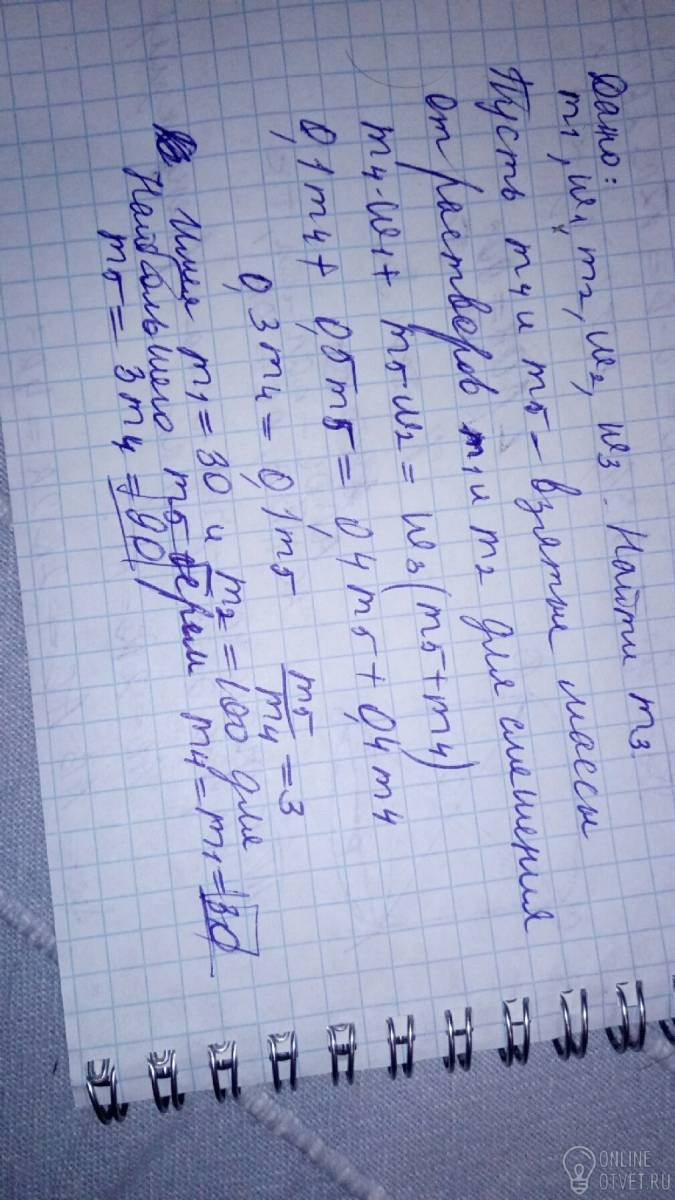 Дано:
m1, w1, m2, w2, w3. Найти m3.
Пусть m4 и m5 - взятые массы
от растворов m1 и m2 для смешения
m4·w1 + m5w2 = w3(m5+m4)
0,1m4 + 0,5m5 = 0,4m5 + 0,4m4
0,3m4 = 0,1m5 m5/m4 = 3
Имея m1 = 30 и m2 = 100 для
наибольшего m5 берем m4 = m1 = 30
m5 = 3m4 = 90
ONLINE
OTVET.RU